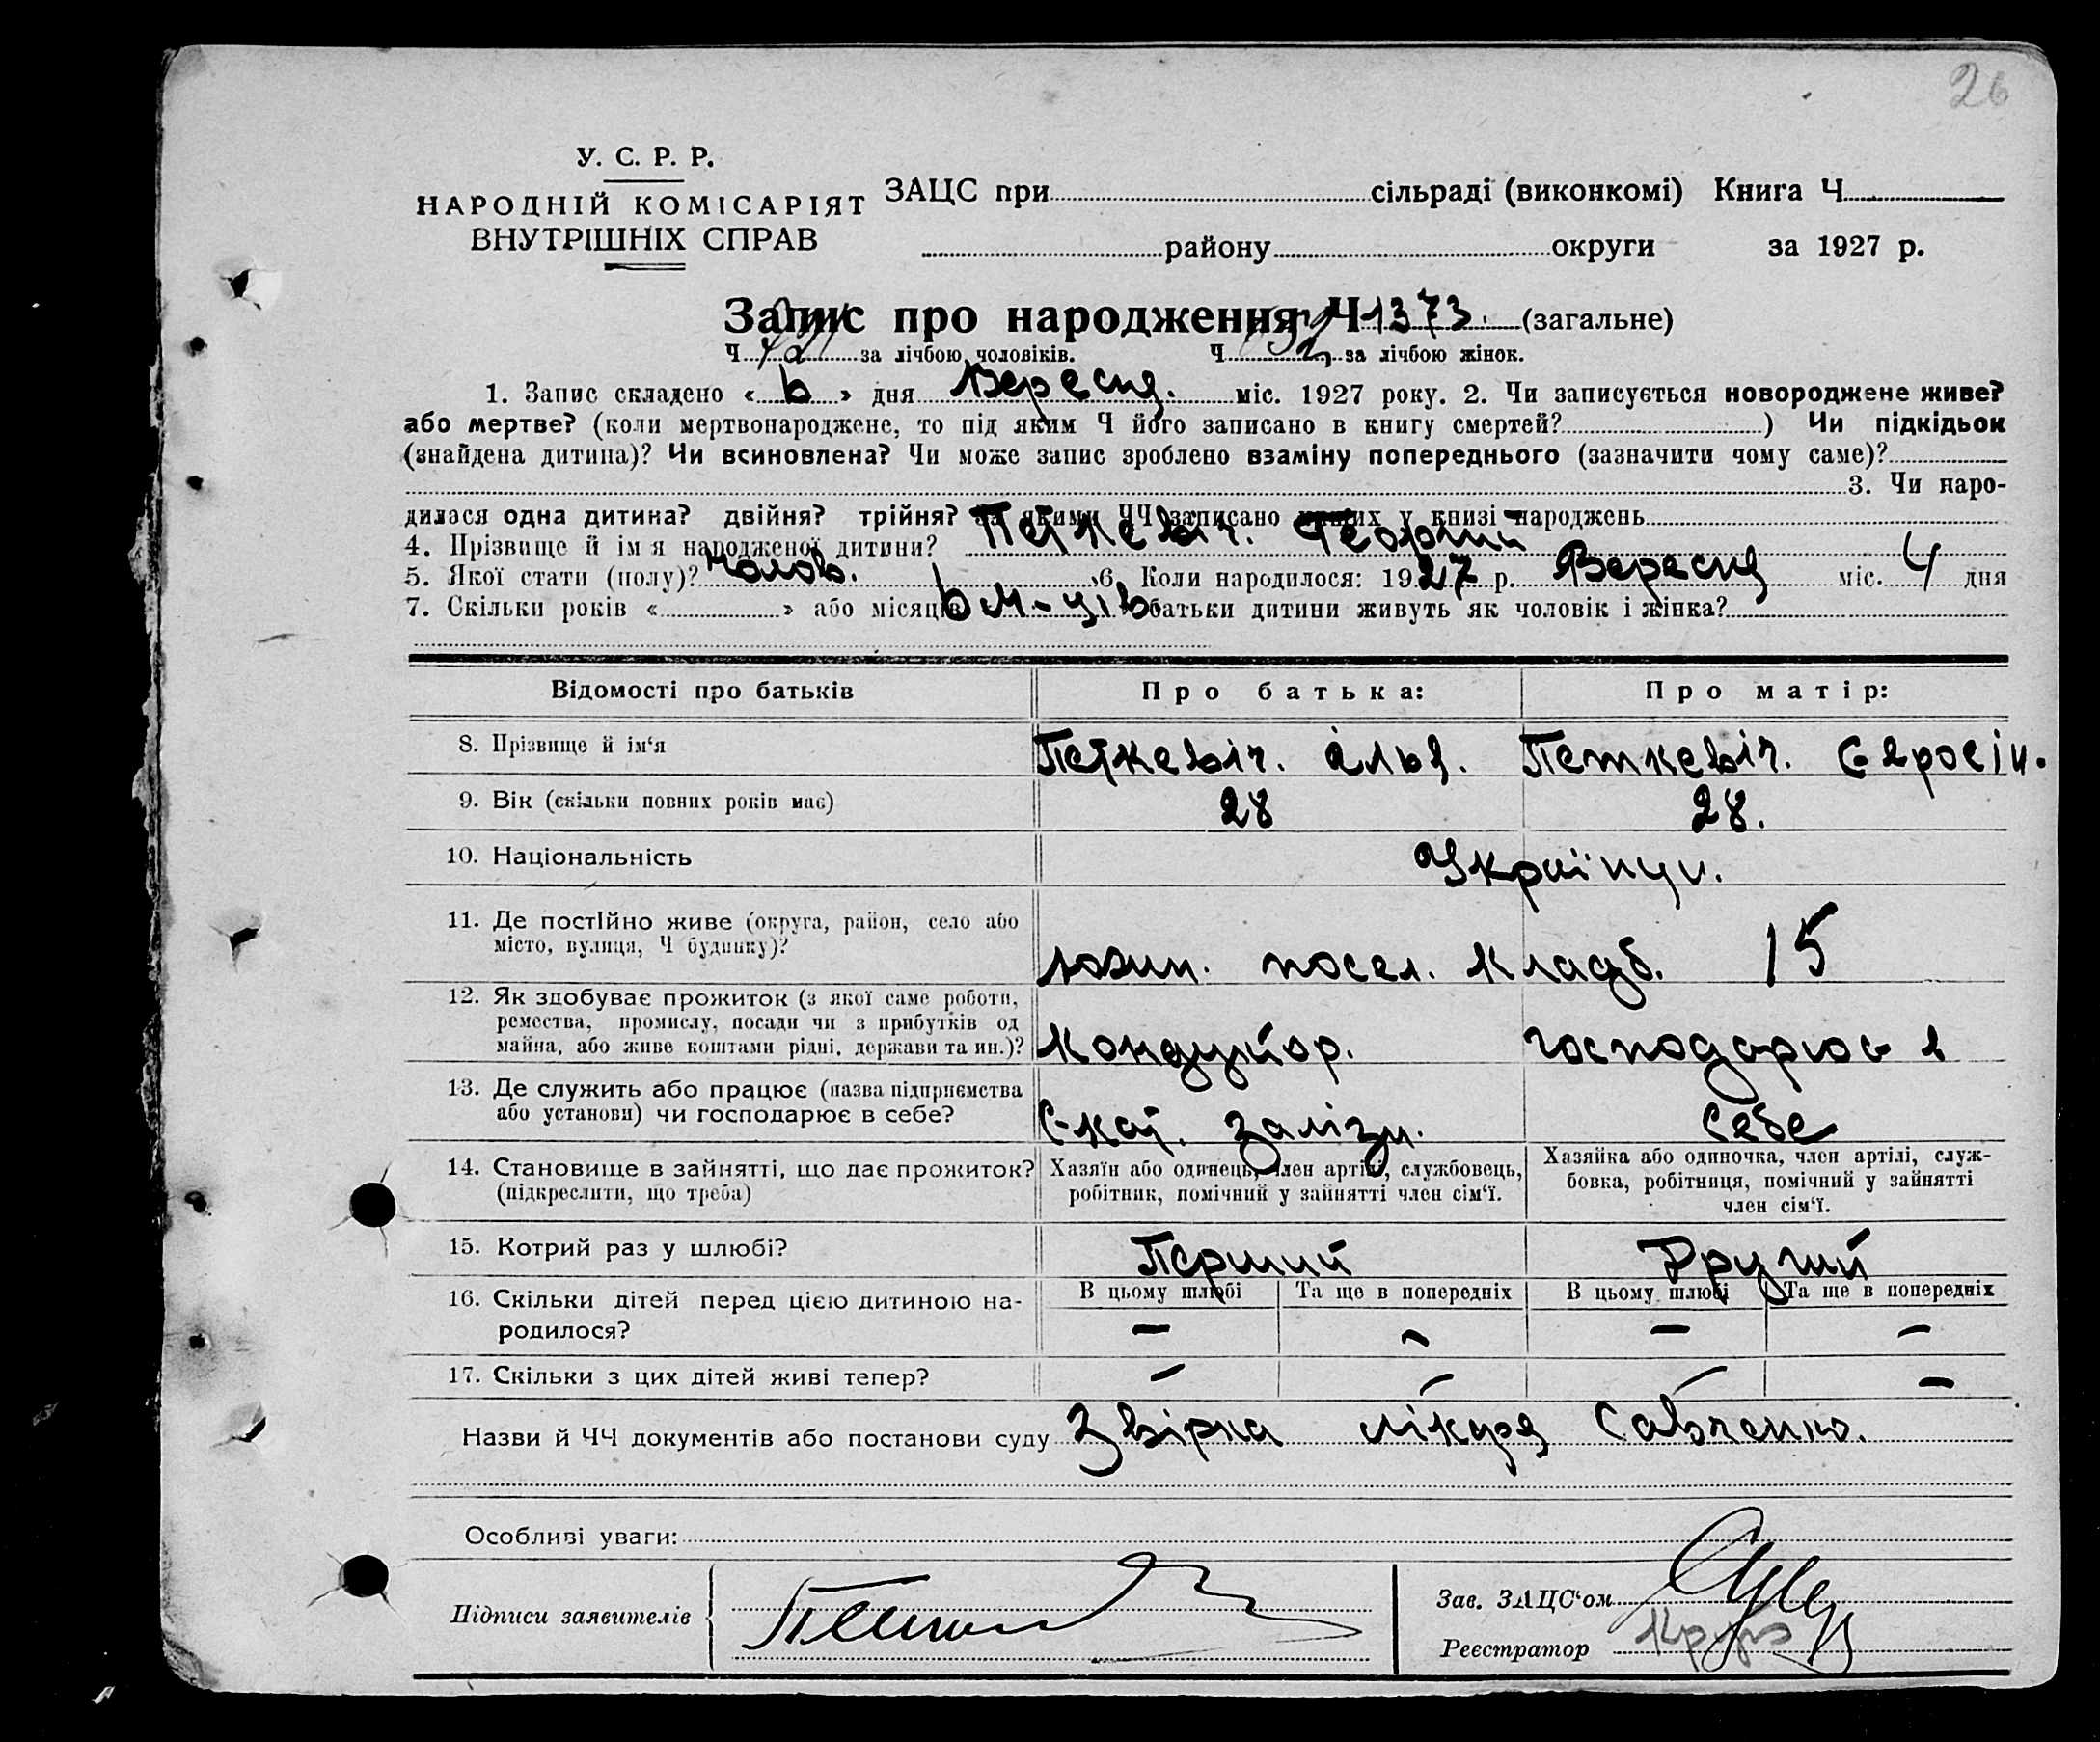 26
У. С. Р. Р.
НАРОДНІЙ КОМІСАРІЯТ
ВНУТРІШНІХ СПРАВ
ЗАЦС при сільраді (виконкомі) Книга Ч
району округи за 1927 р.
Запис про народження Ч 1373. (загальне)
Ч за лічбою чоловіків. Ч за лічбою жінок.
1. Запис складено « 6 » дня Вересня. міс. 1927 року. 2. Чи записується новороджене живе?
або мертве? (коли мертвонароджене, то під яким Ч його записано в книгу смертей? ) Чи підкідьок
(знайдена дитина)? Чи всиновлена? Чи може запис зроблено взаміну попереднього (зазначити чому саме)?
3. Чи наро-
дилася одна дитина? двійня? трійня? За якими ЧЧ записано інших у книзі народжень
4. Прізвище й ім'я народженої дитини? Петкевіч. Георгий
5. Якої стати (полу)? чолов. 6. Коли народилося: 1927 р. Вересня міс. 4 дня
7. Скільки років « » або місяців 6 м-ців батьки дитини живуть як чоловік і жінка?
Відомості про батьків Про батька: Про матір:
8. Прізвище й ім'я Петкевіч. Петкевіч.
9. Вік (скільки повних років має) 28 28.
10. Національність Українци.
11. Де постійно живе (округа, район, село або
місто, вулиця, Ч будинку)? посел. Кладб. 15
12. Як здобуває прожиток (з якої саме роботи,
ремества, промислу, посади чи з прибутків од
майна, або живе коштами рідні, держави та ин.)? Кондуктор. господарює в
13. Де служить або працює (назва підприємства
або установи) чи господарює в себе? С-кат. залізн. себе
14. Становище в зайнятті, що дає прожиток?
(підкреслити, що треба)
Хазяїн або одинець, член артілі, службовець,
робітник, помічний у зайнятті член сім'ї.
Хазяйка або одиночка, член артілі, служ-
бовка, робітниця, помічний у зайнятті
член сім'ї.
15. Котрий раз у шлюбі? Перший Другий
16. Скільки дітей перед цією дитиною на-
родилося?
В цьому шлюбі Та ще в попередніх В цьому шлюбі Та ще в попередніх
— — — —
17. Скільки з цих дітей живі тепер? — — — —
Назви й ЧЧ документів або постанови суду Звірка лікаря Савченко.
Особливі уваги:
Підписи заявителів
Зав. ЗАЦС'ом
Реєстратор